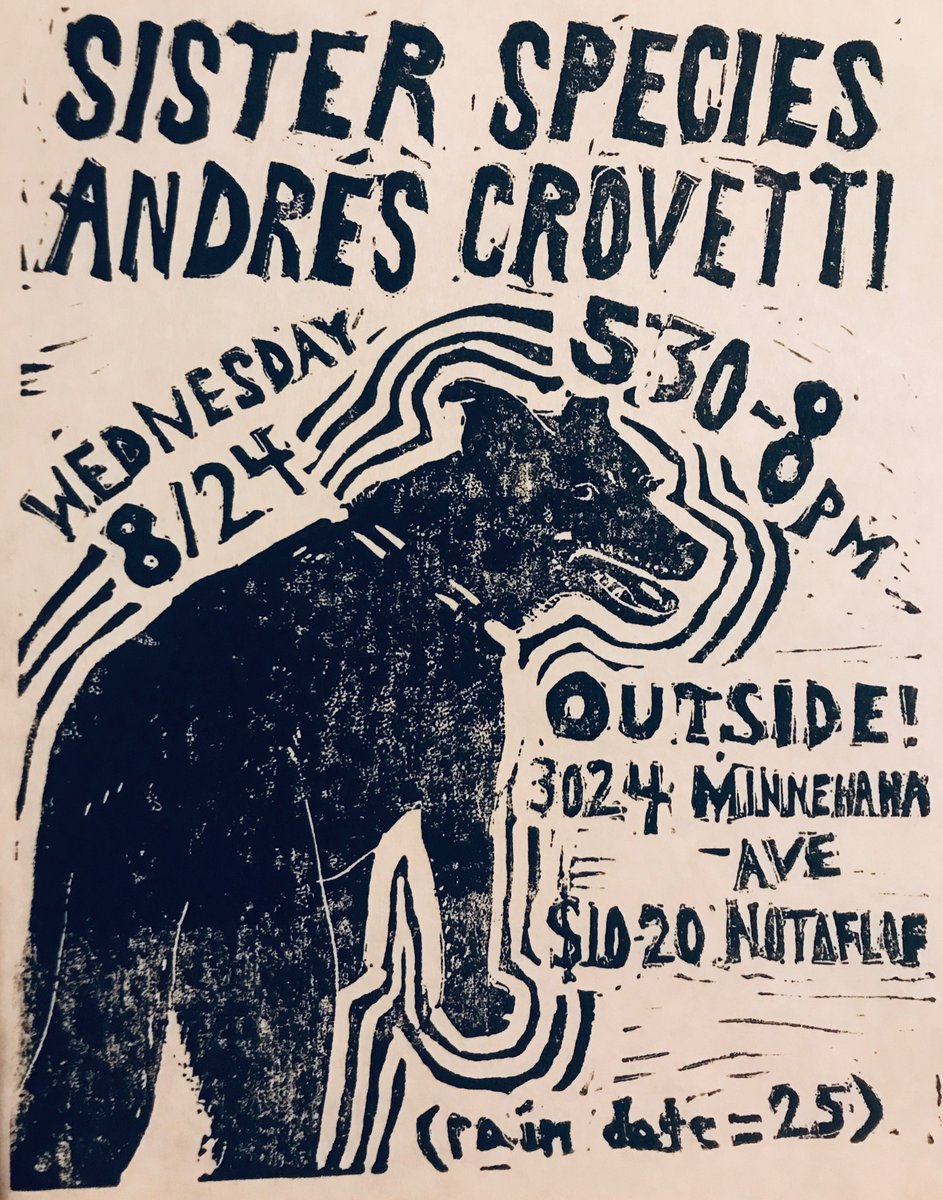 SISTER SPECIES
ANDRÉS CROVETTI
WEDNESDAY
8/24
530-8PM
OUTSIDE!
3024 MINNEHAHA
AVE
$10-20 NOTAFLOF
(rain date=25)